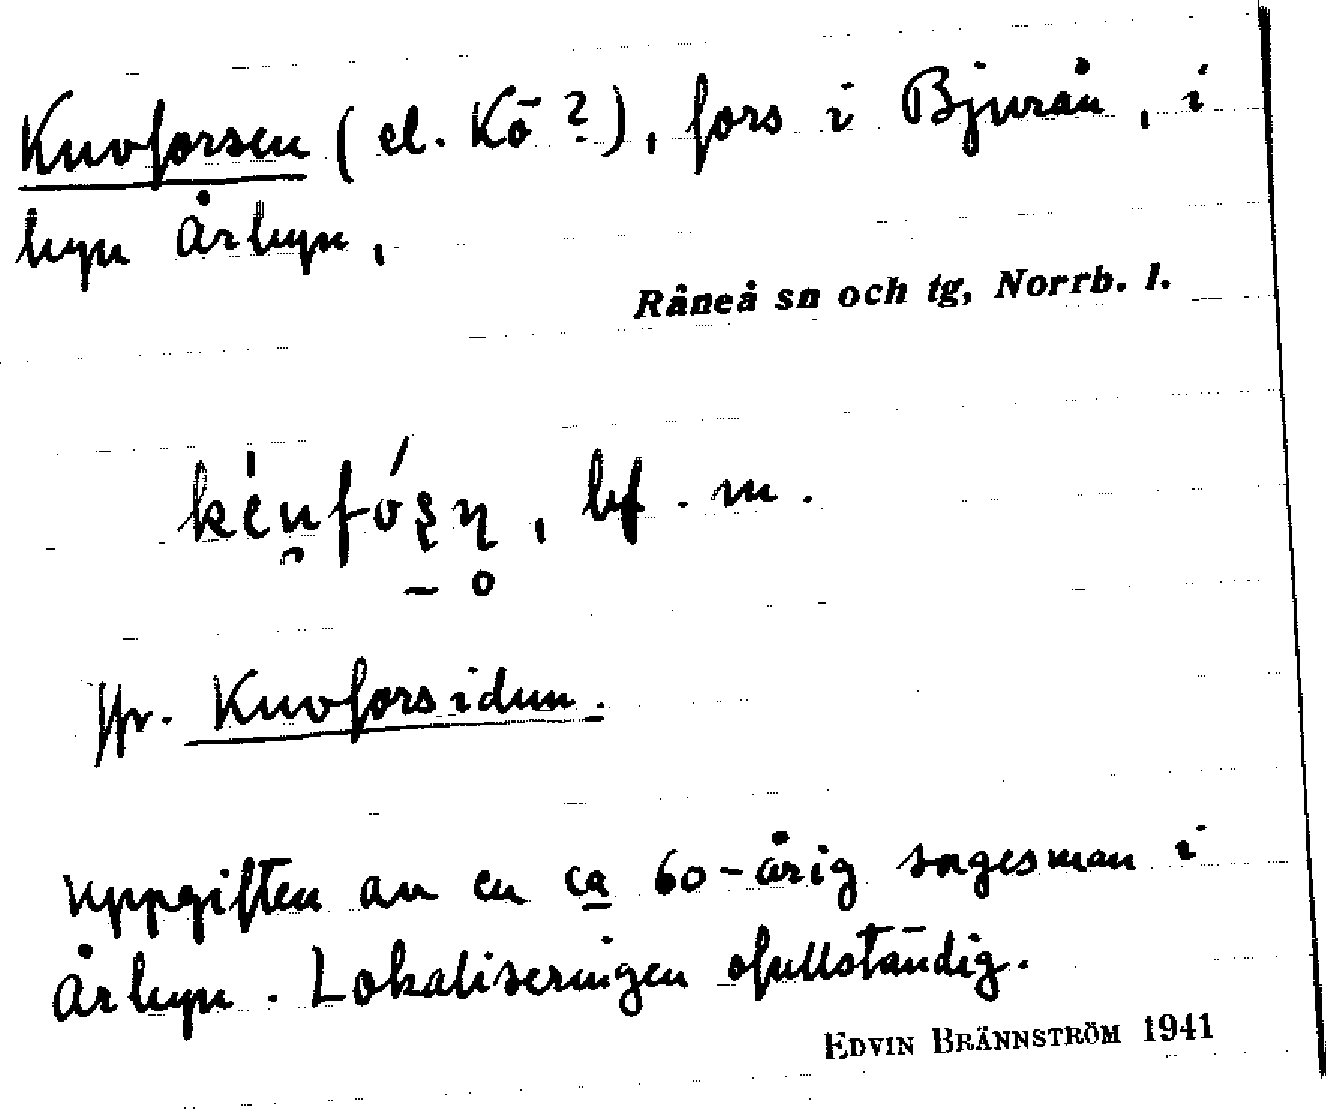 Kuvforsen (el. Kö- ?), fors i Bjurån, i
byn Årbyn,
Råneå sn och tg, Norrb. l.
bf. m.
jfr. Kuvforsidun.
Uppgiften av en ca 60-årig sagesman i
Årbyn. Lokaliseringen ofullständig.
EDVIN BRÄNNSTRÖM 1941